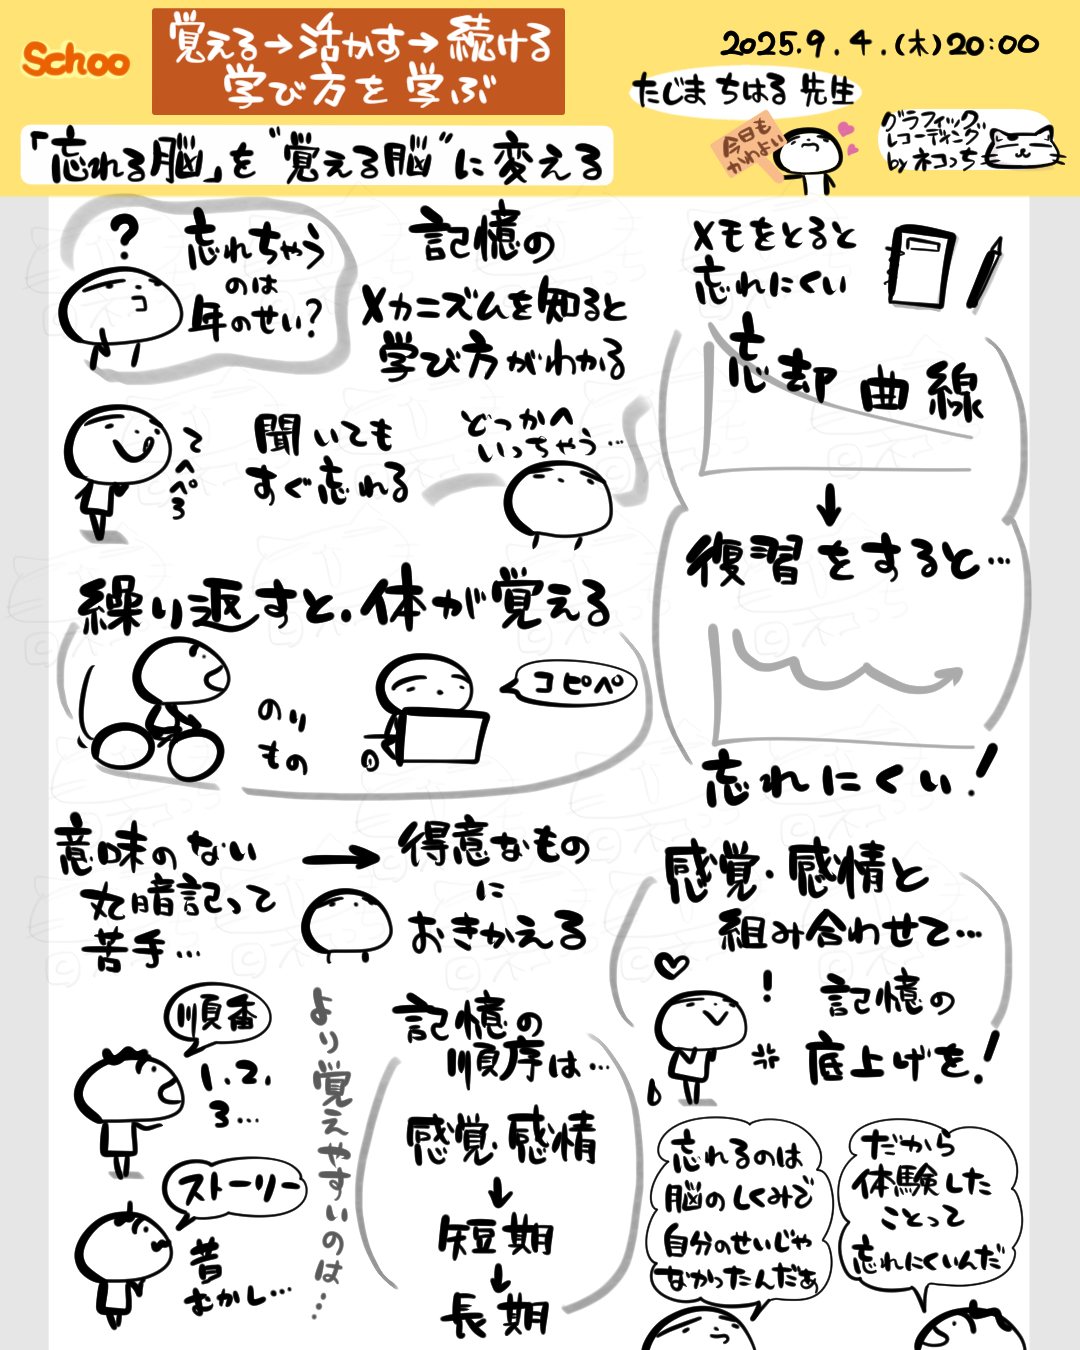 Schoo
覚える→活かす→続ける
学び方を学ぶ
2025.9.4.(木)20:00
たじまちはる先生
「忘れる脳」を"覚える脳"に変える
今日も
かわよい
グラフィック
レコーディング
by ネコっち
?
忘れちゃう
のは
年のせい?
記憶の
メカニズムを知ると
学び方がわかる
メモをとると
忘れにくい
忘却曲線
復習をすると…
忘れにくい!
てへぺろ
聞いても
すぐ忘れる
どっかへ
いっちゃう…
繰り返すと、体が覚える
のり
もの
コピペ
意味のない
丸暗記って
苦手…
→
得意なもの
に
おきかえる
感覚・感情と
組み合わせて…
記憶の
底上げを!
順番
1.2.
3…
ストーリー
昔
むかし…
より覚えやすいのは…
記憶の
順序は…
感覚・感情
↓
短期
↓
長期
忘れるのは
脳のしくみで
自分のせいじゃ
なかったんだぁ
だから
体験した
ことって
忘れにくいんだ